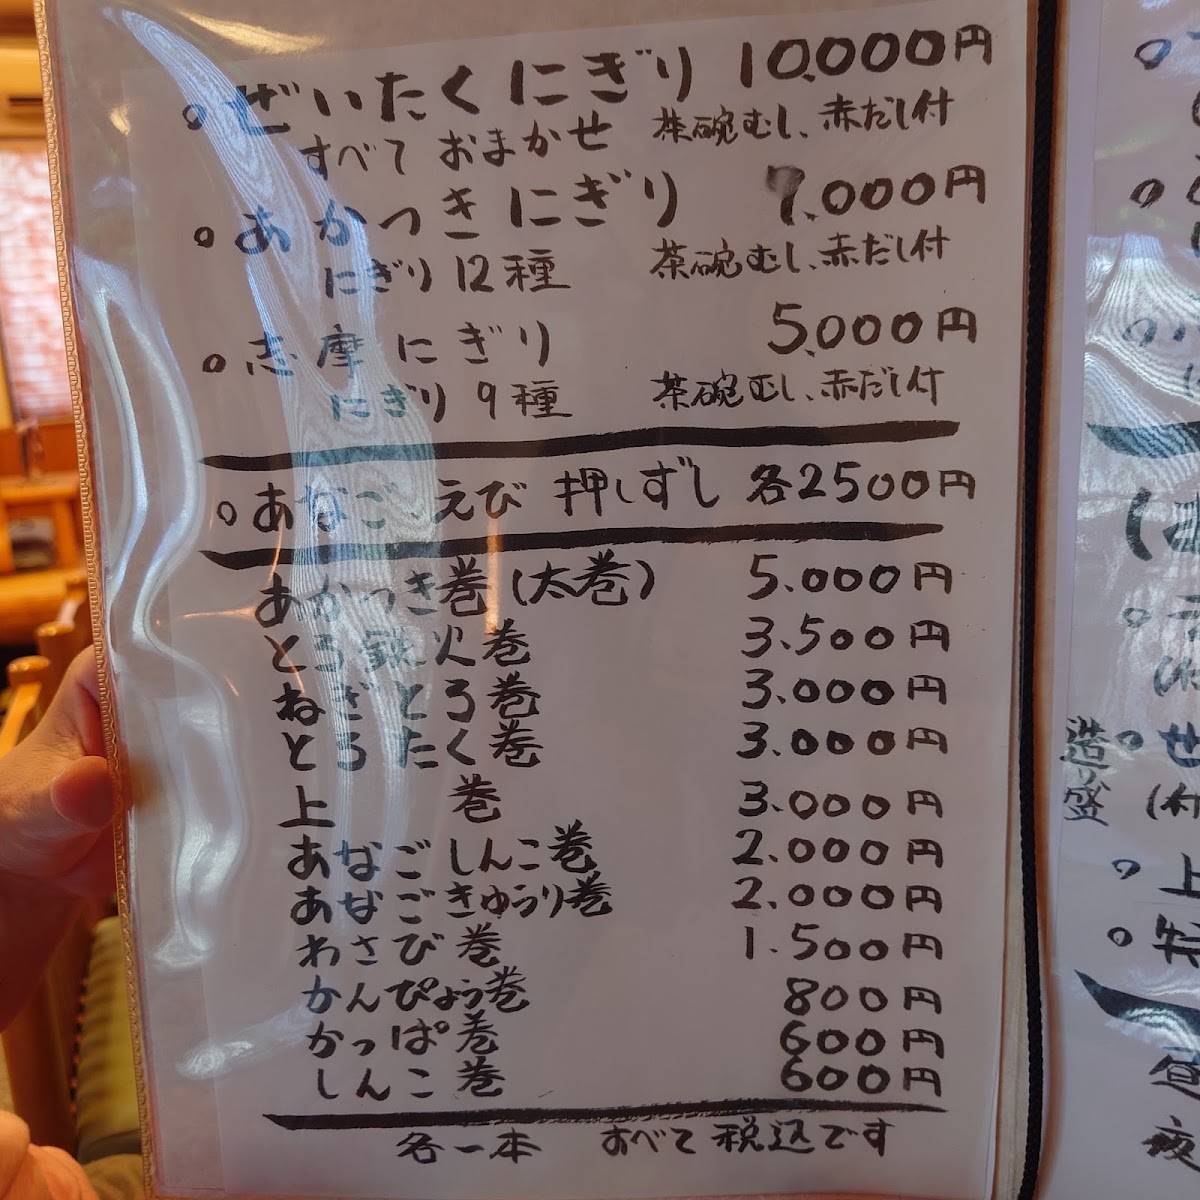 ○ ぜいたくにぎり 10.000円
すべておまかせ 茶碗むし、赤だし付
○ あかつきにぎり 7.000円
にぎり12種 茶碗むし、赤だし付
○ 志摩にぎり 5.000円
にぎり9種 茶碗むし、赤だし付
○ あなご、えび 押しずし 各2500円
あかつき巻(太巻) 5.000円
とろ鉄火巻 3.500円
ねぎとろ巻 3.000円
とろたく巻 3.000円
上巻 3.000円
あなごしんこ巻 2.000円
あなごきゅうり巻 2.000円
わさび巻 1.500円
かんぴょう巻 800円
かっぱ巻 600円
しんこ巻 600円
各一本 すべて税込です
造盛
○ 上